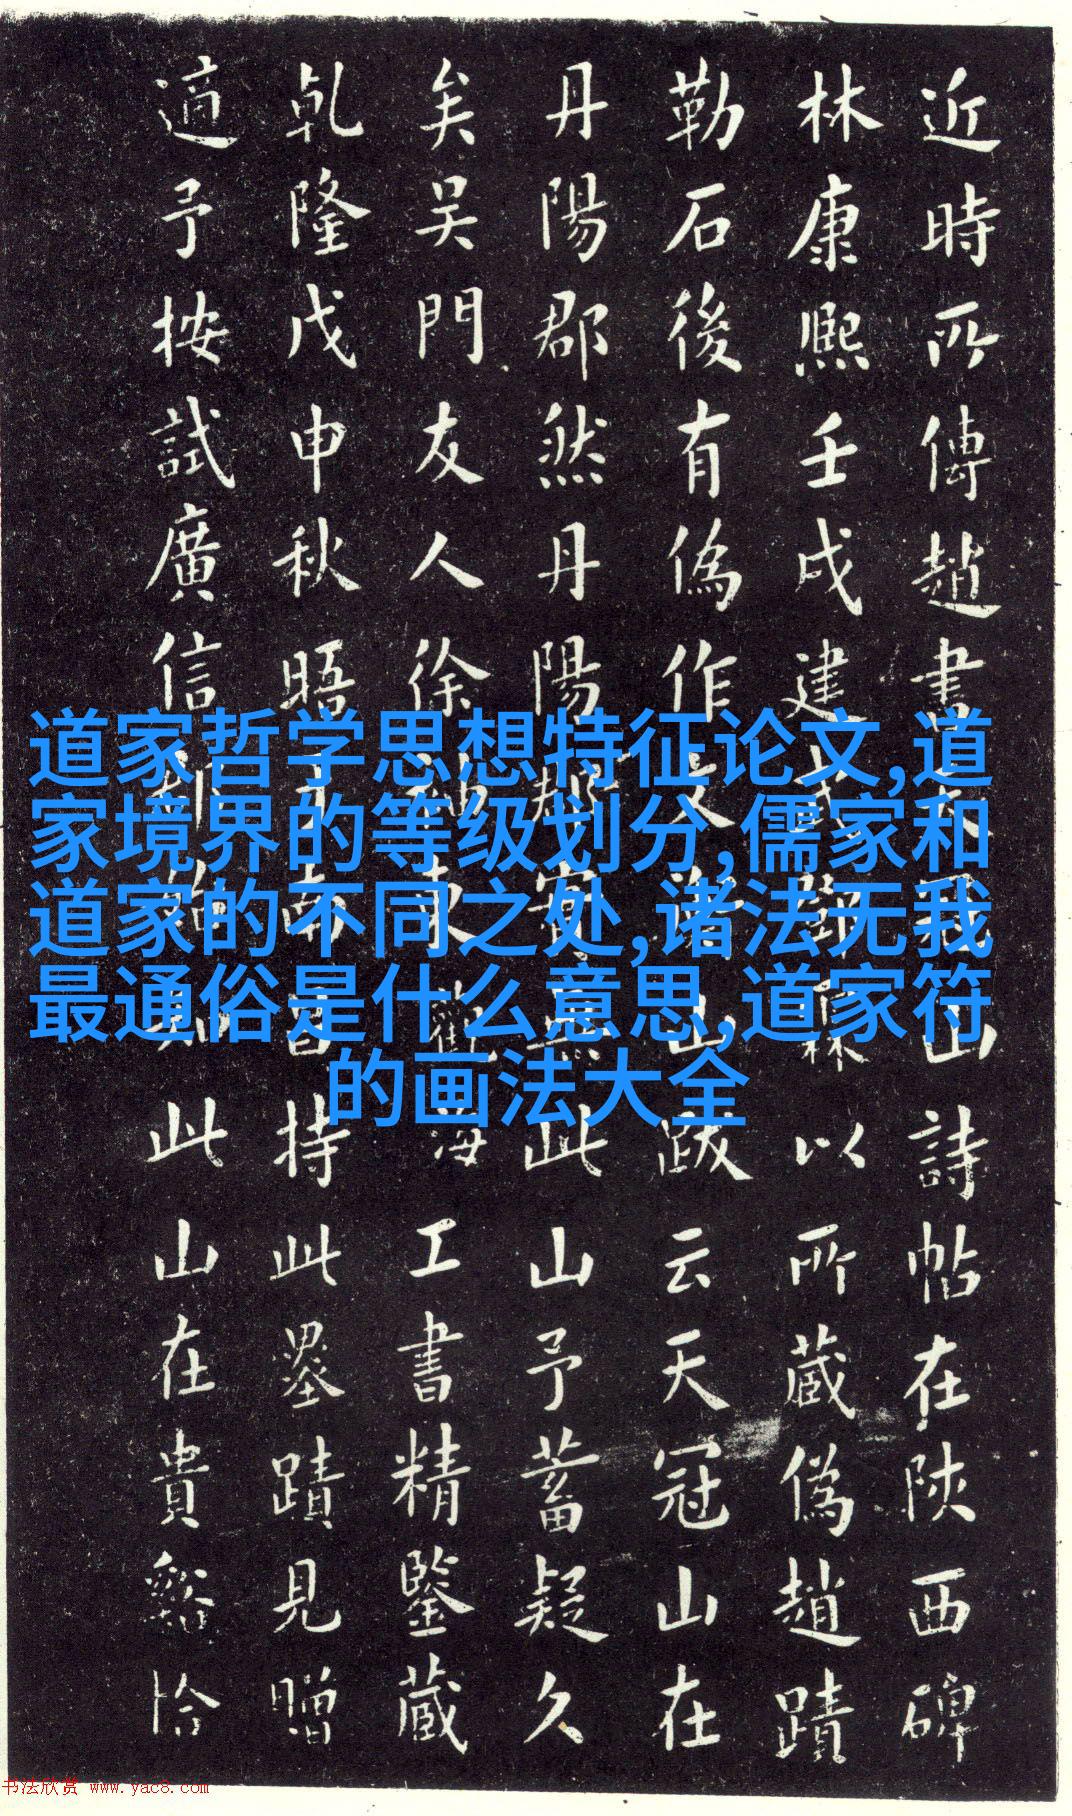 近時所傳趙書天冠山詩帖在陝西碑
林康熙壬戌建 以所藏偽趙蹟
勒石後有偽作 山跋云天冠山在
丹陽郡然丹陽郡實無此山予蓄疑久
矣吴門友人徐 東觀海工書精鑒藏
乹隆戊申秋晤 南昌持此墨蹟見贈
適予按試廣信 知此山在貴谿恰
道家哲学思想特征论文,道
家境界的等级划分,儒家和
道家的不同之处,诸法无我
最通俗是什么意思,道家符
的画法大全
书法欣赏 www.yac8.com